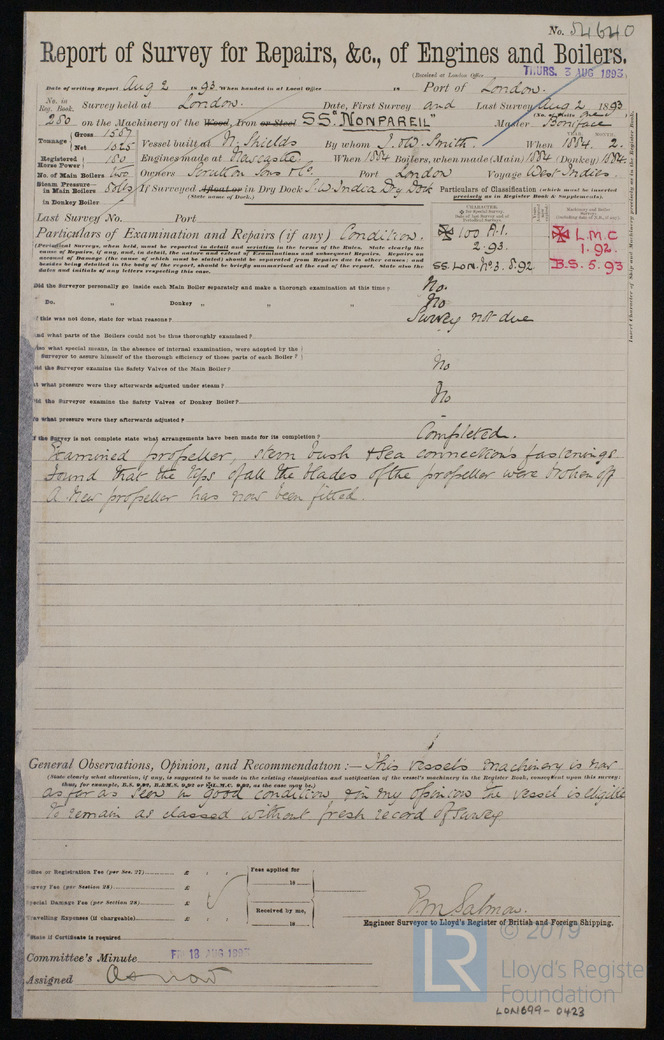 No. 54640
Report of Survey for Repairs, &c., of Engines and Boilers.
(Received at London Office THURS. 3 AUG 1893)
Date of writing Report Aug 2 1893 When handed in at Local Office 18 Port of London.
No. in Reg. Book. Survey held at London. Date, First Survey and Last Survey Aug 2 1893
250 on the Machinery of the Wood, Iron or Steel SS "NONPAREIL" Master Boniface
Tonnage Gross 1557 Net 1025 Vessel built at N. Shields By whom J. & W. Smith. When 1884. 2.
Registered Horse Power 180 Engines made at Newcastle When 1884 Boilers, when made (Main) 1884 (Donkey) 1884
No. of Main Boilers two Owners Scrutton Sons & Co. Port London Voyage West Indies.
Steam Pressure in Main Boilers 80 lbs If Surveyed Afloat or in Dry Dock S.W. India Dry Dock
(State name of Dock.)
in Donkey Boiler
Particulars of Classification (which must be inserted precisely as in Register Book & Supplement).
Last Survey No. Port
Particulars of Examination and Repairs (if any) Condition.
(Periodical Surveys, when held, must be reported in detail and seriatim in the terms of the Rules. State clearly the
cause of Repairs, if any, and, in detail, the nature and extent of Examinations and subsequent Repairs. Repairs on
account of Damage (the cause of which must be stated) should be separated from Repairs due to other causes; and
besides being detailed in the body of the report, should be briefly summarised at the end of the report. State also the
dates and initials of any letters respecting this case.
CHARACTER
100 A.1.
2.93
SS. LON. No 3. 8.92
Machinery and Boiler Surveys
L.M.C
1.92.
B.S. 5.93
Insert Character of Ship and Machinery precisely as in the Register Book.
Did the Surveyor personally go inside each Main Boiler separately and make a thorough examination at this time? No.
Do. " Donkey " " " No
If this was not done, state for what reasons? Survey not due
And what parts of the Boilers could not be thoroughly examined?
Also what special means, in the absence of internal examination, were adopted by the
Surveyor to assure himself of the thorough efficiency of those parts of each Boiler?
Did the Surveyor examine the Safety Valves of the Main Boiler? No
At what pressure were they afterwards adjusted under steam?
Did the Surveyor examine the Safety Valves of Donkey Boiler? No
To what pressure were they afterwards adjusted?
If the Survey is not complete state what arrangements have been made for its completion? Completed.
Examined propeller, stern bush & sea connections fastenings
Found that the tips of all the blades of the propeller were broken off
A new propeller has now been fitted.
General Observations, Opinion, and Recommendation:— This vessel's machinery is now
(State clearly what alteration, if any, is suggested to be made in the existing classification and notification of the vessel's machinery in the Register Book, consequent upon this survey;
thus, for example, B.S. 9,92, B.&M.S. 9,92 or L.M.C. 9,92, as the case may be.)
as far as seen in good condition & in my opinion the vessel is eligible
to remain as classed without fresh record of survey
Office or Registration Fee (per Sec. 27) £
Survey Fee (per Section 28) £
Special Damage Fee (per Section 28) £
Travelling Expenses (if chargeable) £
Fees applied for
18
Received by me,
18
State if Certificate is required
P. M. Salmon.
Engineer Surveyor to Lloyd's Register of British and Foreign Shipping.
Committee's Minute FRI 18 AUG 1893
Assigned As now
© 2019
LR
Lloyd's Register
Foundation
LON699-0423